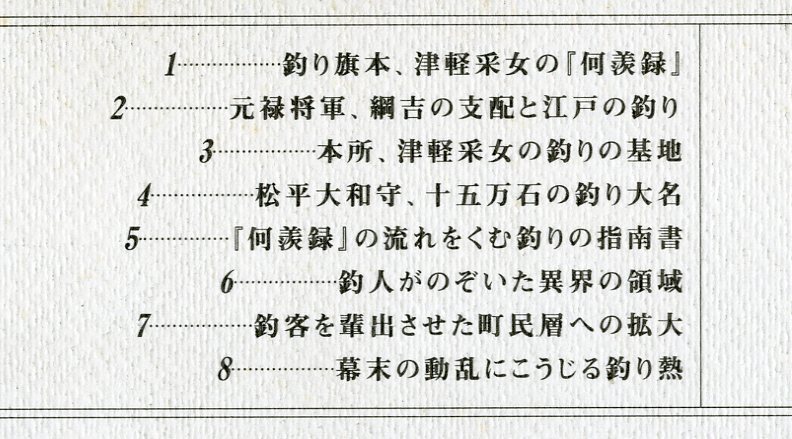 1……………釣り旗本、津軽采女の『何羨録』
2……………元禄将軍、綱吉の支配と江戸の釣り
3……………本所、津軽采女の釣りの基地
4……………松平大和守、十五万石の釣り大名
5……………『何羨録』の流れをくむ釣りの指南書
6……………釣人がのぞいた異界の領域
7……………釣客を輩出させた町民層への拡大
8……………幕末の動乱にこうじる釣り熱